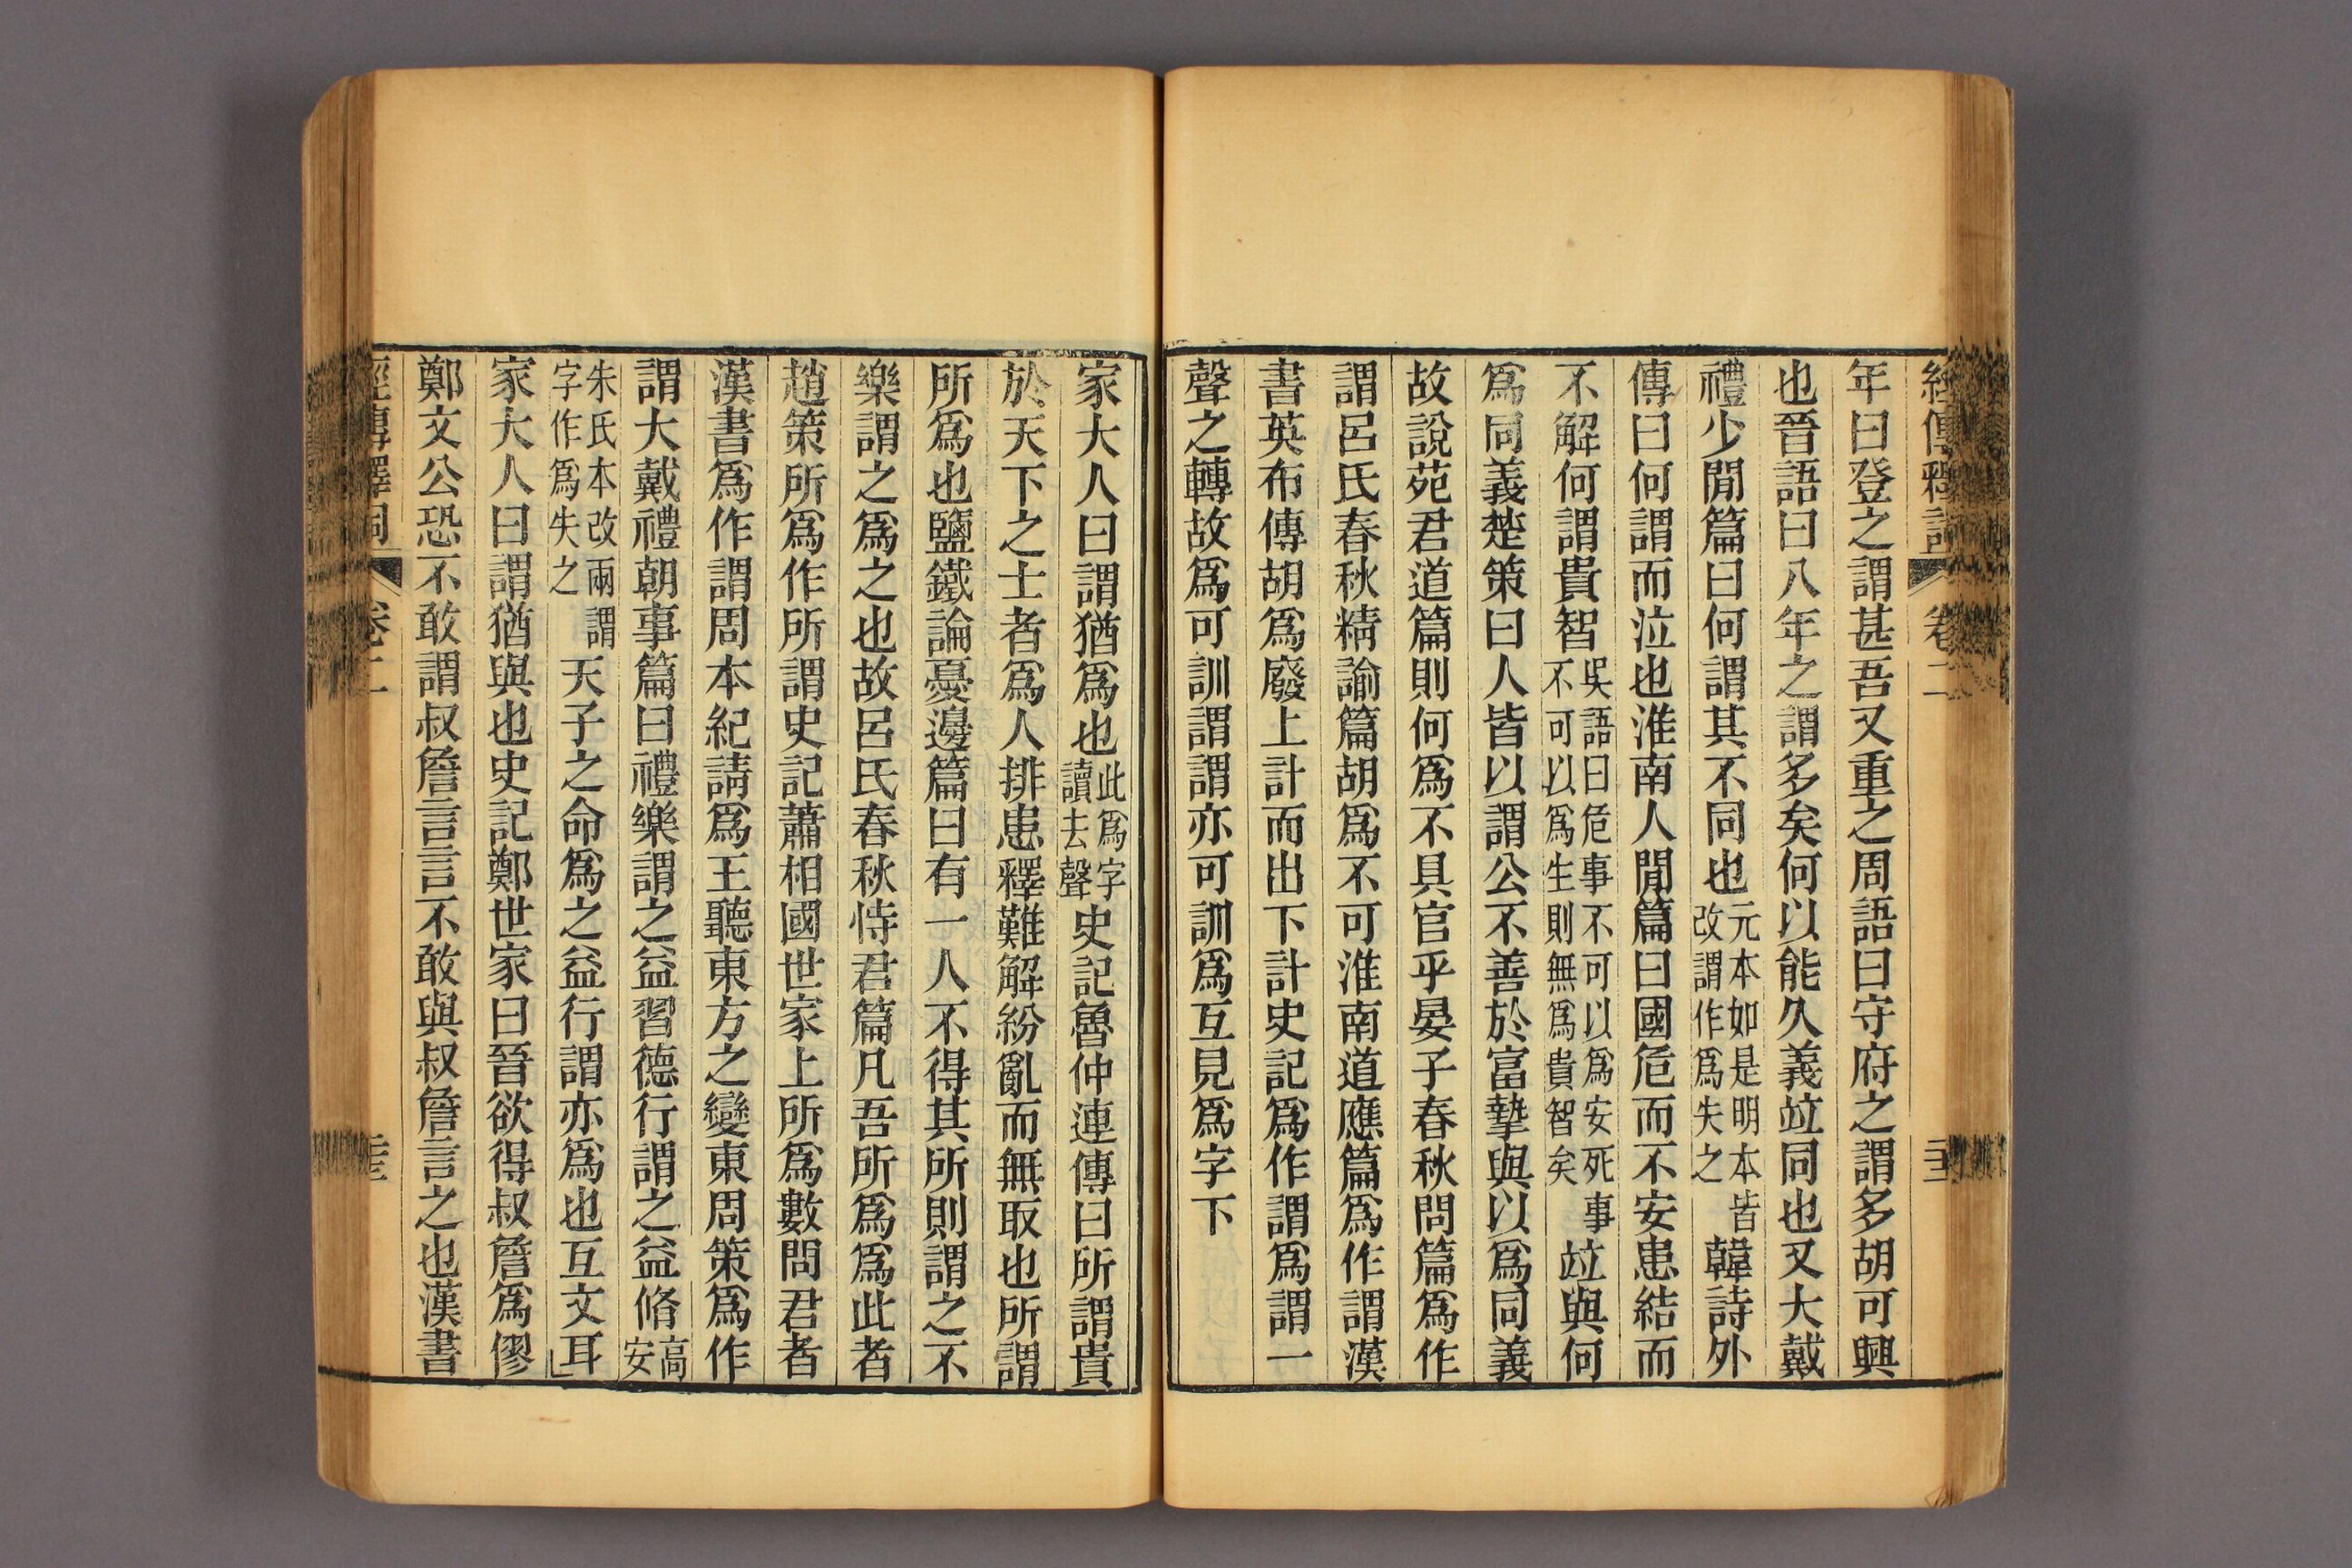 經傳釋詞 卷二
年曰登之謂甚吾又重之周語曰守府之謂多胡可興
也晉語曰八年之謂多矣何以能久義竝同也又大戴
禮少閒篇曰何謂其不同也元本如是明本皆改謂作爲失之韓詩外
傳曰何謂而泣也淮南人閒篇曰國危而不安患結而
不解何謂貴智吳語曰危事不可以爲安死事不可以爲生則無爲貴智矣竝與何
爲同義楚策曰人皆以謂公不善於富摯與以爲同義
故說苑君道篇則何爲不具官乎晏子春秋問篇爲作
謂呂氏春秋精諭篇胡爲不可淮南道應篇爲作謂漢
書英布傳胡爲廢上計而出下計史記爲作謂爲謂一
聲之轉故爲可訓謂謂亦可訓爲互見爲字下
家大人曰謂猶爲也此爲字讀去聲史記魯仲連傳曰所謂貴
於天下之士者爲人排患釋難解紛亂而無取也所謂
所爲也鹽鐵論憂邊篇曰有一人不得其所則謂之不
樂謂之爲之也故呂氏春秋恃君篇凡吾所爲爲此者
趙策所爲作所謂史記蕭相國世家上所爲數問君者
漢書爲作謂周本紀請爲王聽東方之變東周策爲作
謂大戴禮朝事篇曰禮樂謂之益習德行謂之益脩高安
朱氏本改兩謂字作爲失之天子之命爲之益行謂亦爲也互文耳
家大人曰謂猶與也史記鄭世家曰晉欲得叔詹爲僇
鄭文公恐不敢謂叔詹言言不敢與叔詹言之也漢書
經傳釋詞 卷二